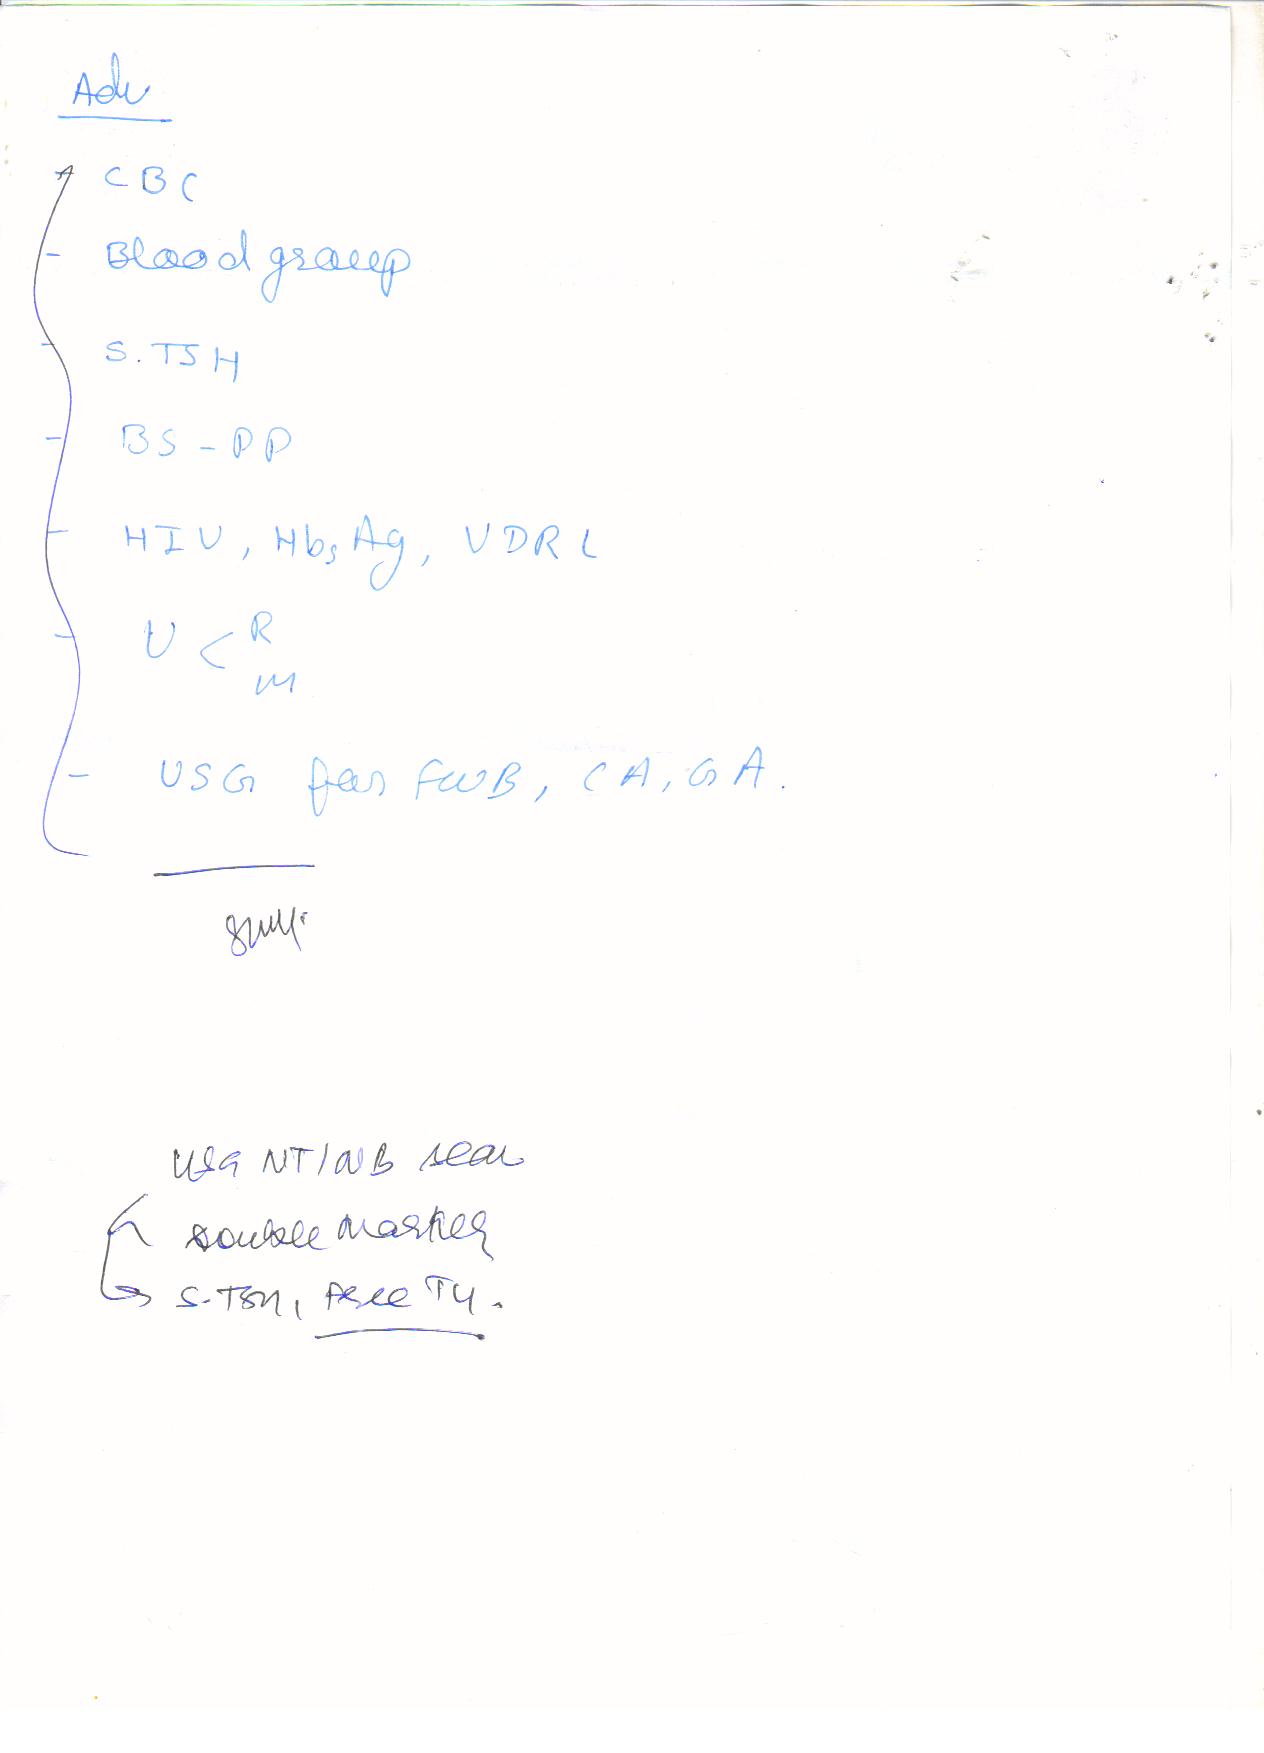 Adv
CBC
- Blood group
- S. TSH
- BS - PP
- HIV, HbsAg, VDRL
- U < R
M
- USG for FWB, CA, GA.
USG NT/NB scan
Double Marker
S. TSH, Free T4.